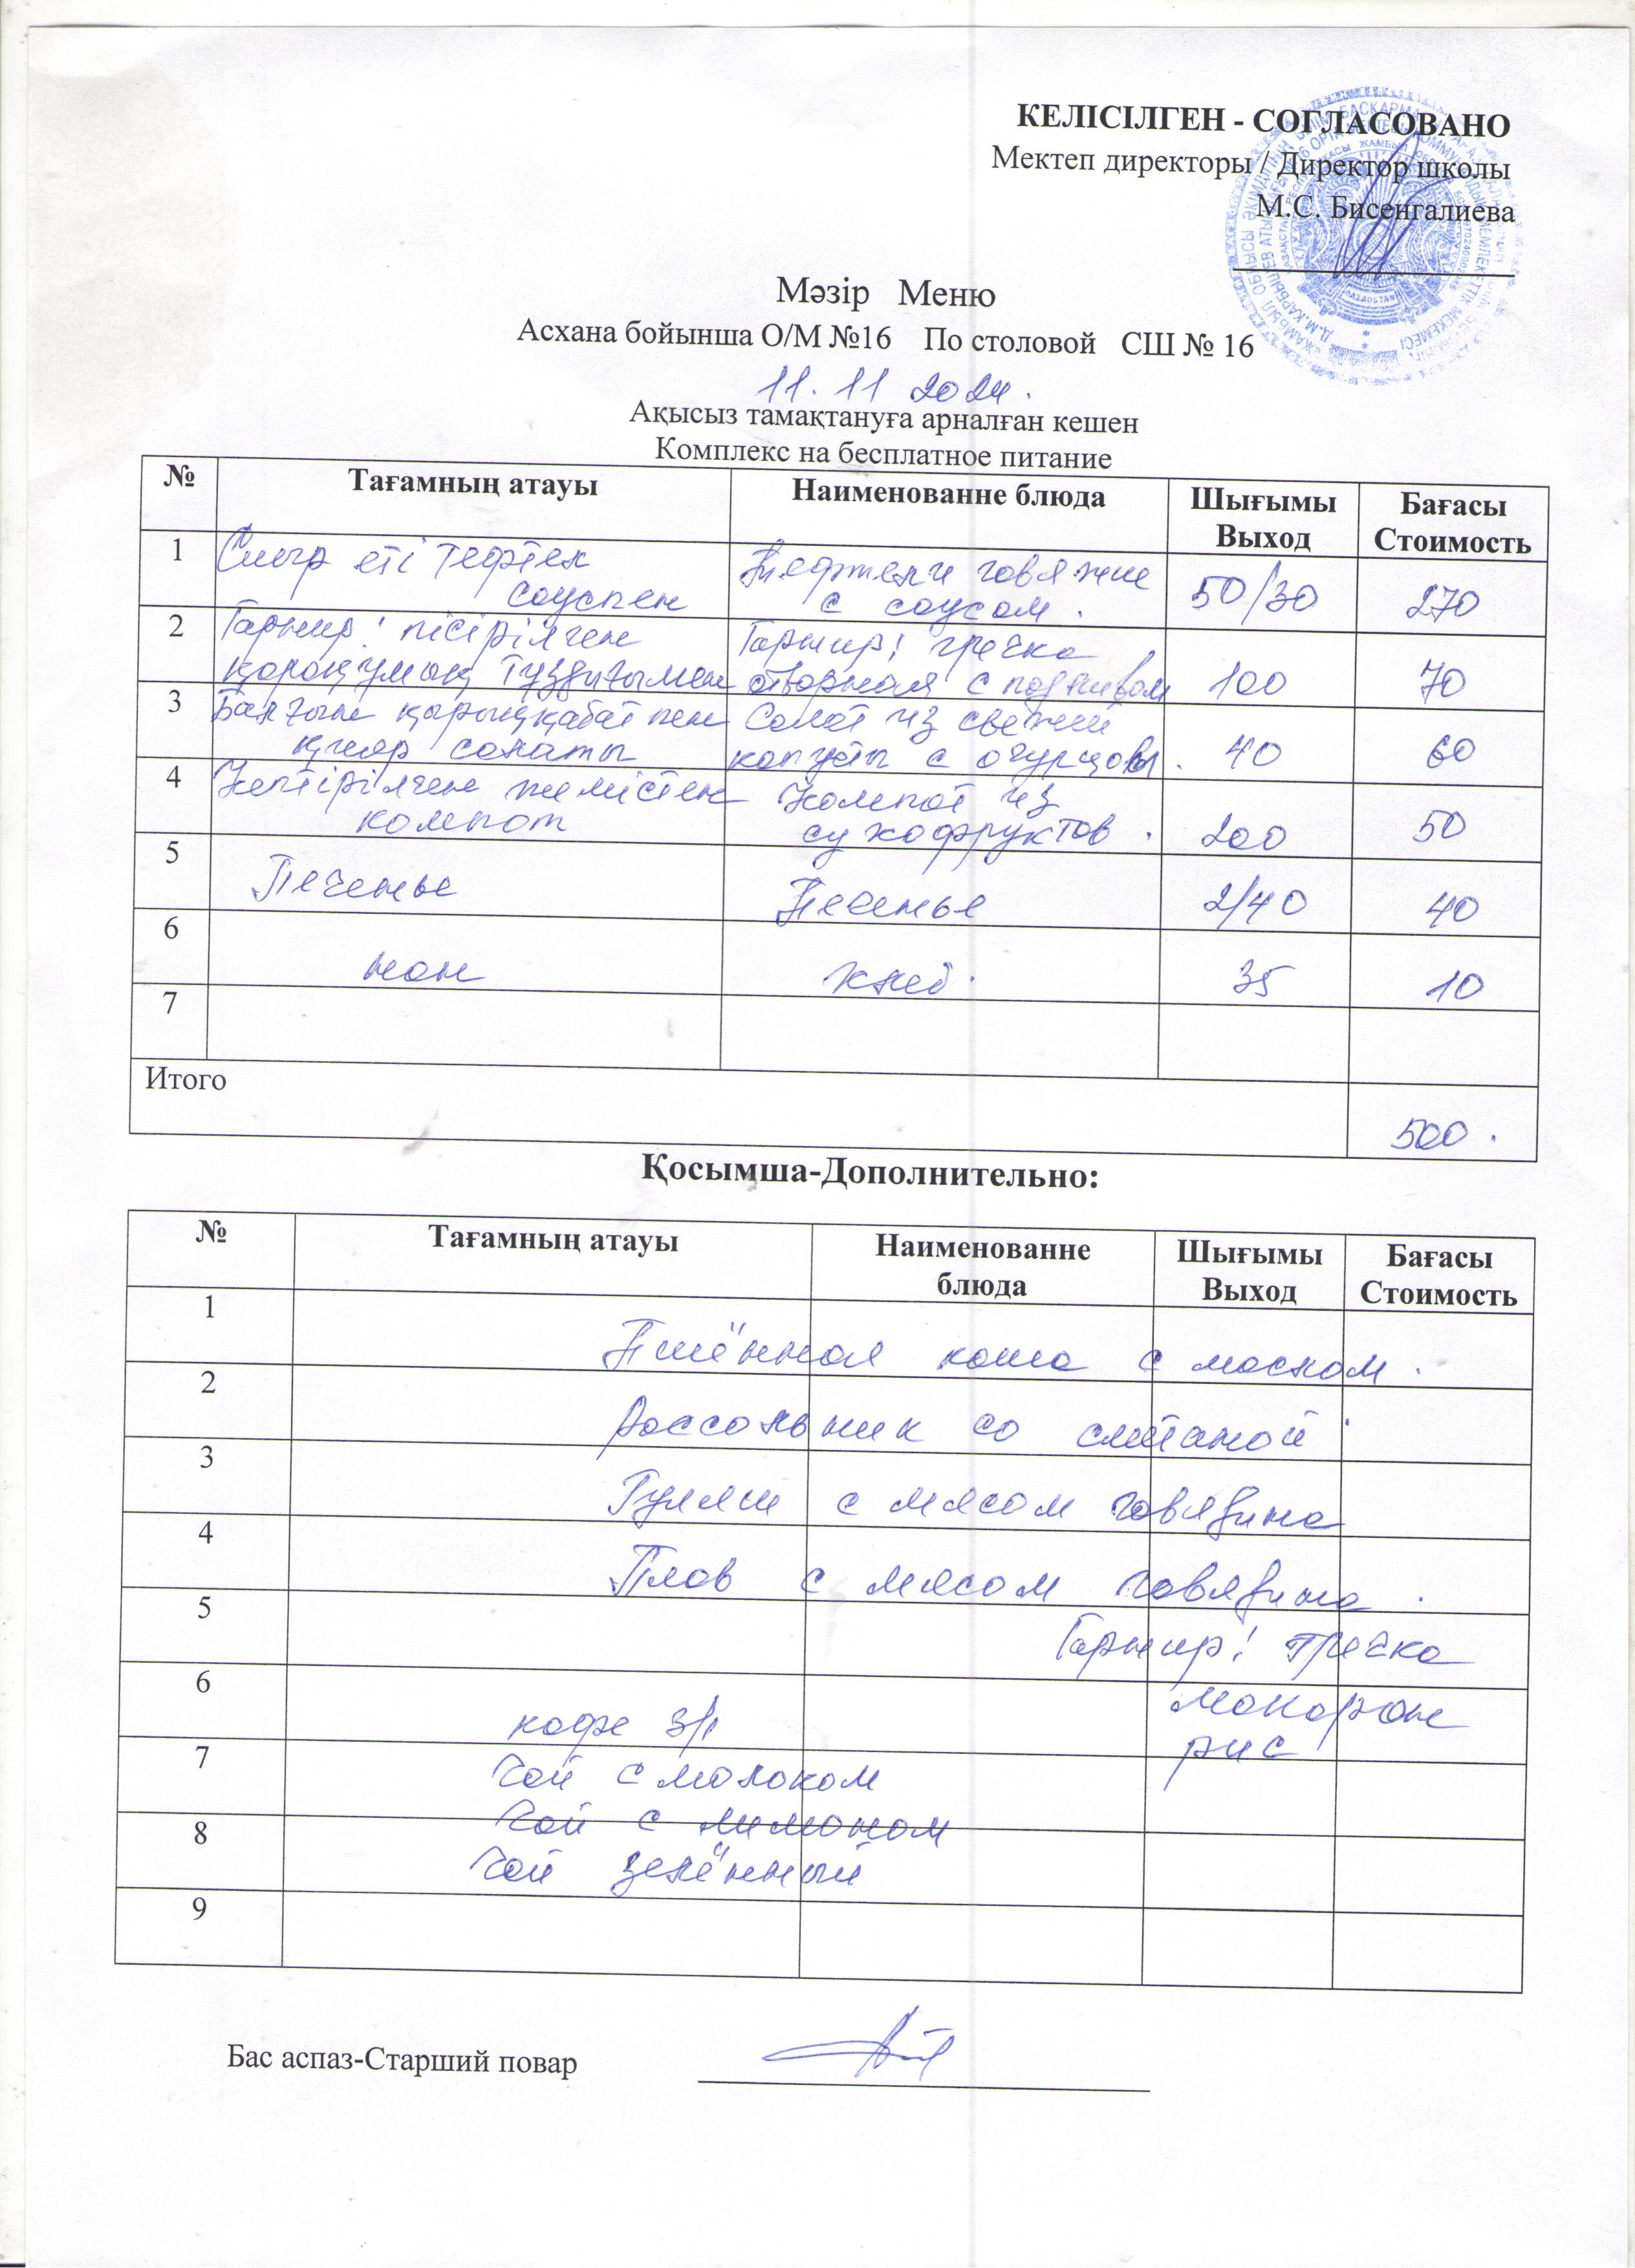 КЕЛІСІЛГЕН - СОГЛАСОВАНО
Мектеп директоры / Директор школы
М.С. Бисенгалиева
Мәзір Меню
Асхана бойынша О/М №16 По столовой СШ № 16
11.11 2024.
Ақысыз тамақтануға арналған кешен
Комплекс на бесплатное питание
№ Тағамның атауы Наименованне блюда Шығымы Бағасы
Выход Стоимость
1 Сиыр еті тефтел Тефтели говяжие
соуспен с соусом. 50/30 270
2 Гарнир: пісірілген Гарнир: гречка
қарақұмық тұздығымен отворная с подливом 100 70
3 Балғын қырыққабат пен Салат из свежей
қияр салаты капусты с огурцовы. 40 60
4 Кептірілген жемістен Компот из
компот сухофруктов. 200 50
5 Печенье Печенье 2/40 40
6 нан хлеб. 35 10
7
Итого
500.
Қосымша-Дополнительно:
№ Тағамның атауы Наименованне Шығымы Бағасы
блюда Выход Стоимость
1 Пшённая каша с маслом.
2 Рассольник со сметаной.
3 Гуляш с мясом говядина
4 Плов с мясом говядина.
5 Гарнир: гречка
6 кофе 3/1 макароне
рис
7 Чай с молоком
Чай с лимоном
8 Чай зелённый
9
Бас аспаз-Старший повар